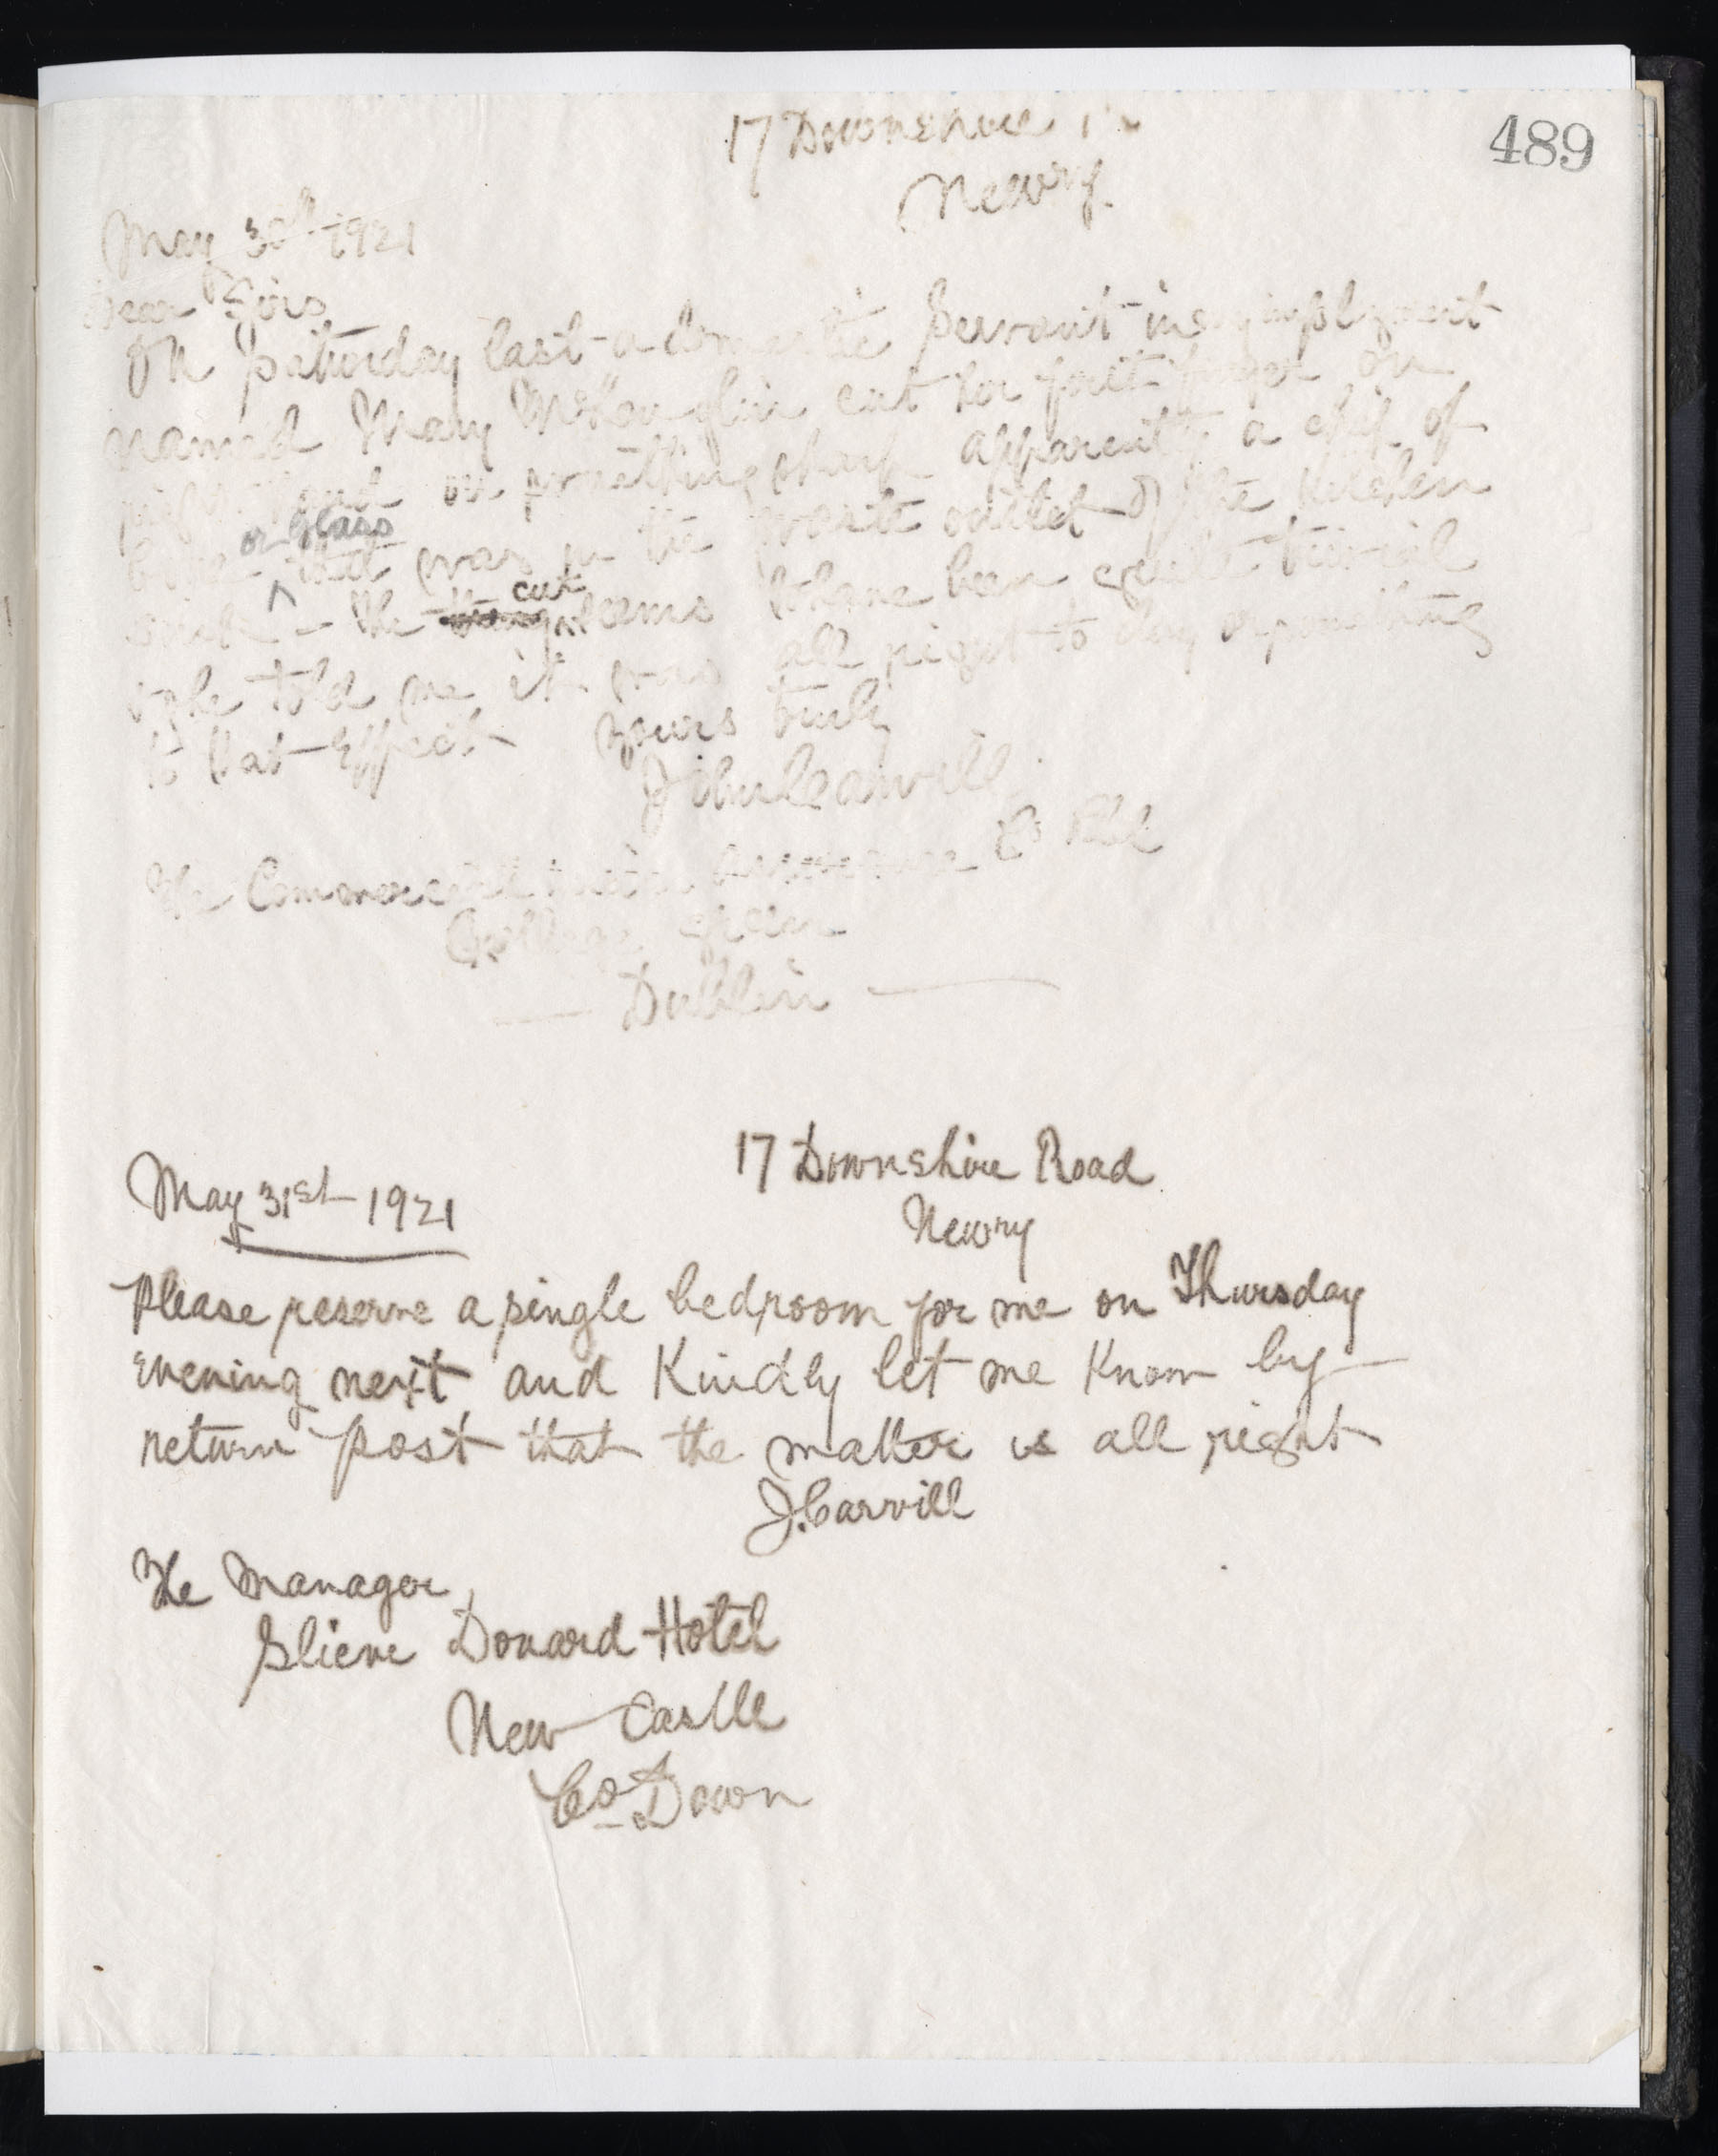 489
17 Downshire
Newry
May 30th 1921
Dear Sirs
On Saturday last a domestic servant in my employment
named Mary McLoughlin cut her first finger on
right hand on something sharp apparently a chip of
bone or glass that was in the waste outlet of the Kitchen
sink - The cut seems to have been quite trivial
& she told me it was all right to day or something
to that effect
Yours truly
John Carvill
The Commercial Union Assurance Co Ltd
College Green
Dublin
17 Downshire Road
Newry
May 31st 1921
Please reserve a single bedroom for me on Thursday
evening next and Kindly let me Know by
return post that the matter is all right
J. Carvill
The Manager
Slieve Donard Hotel
New Castle
Co Down